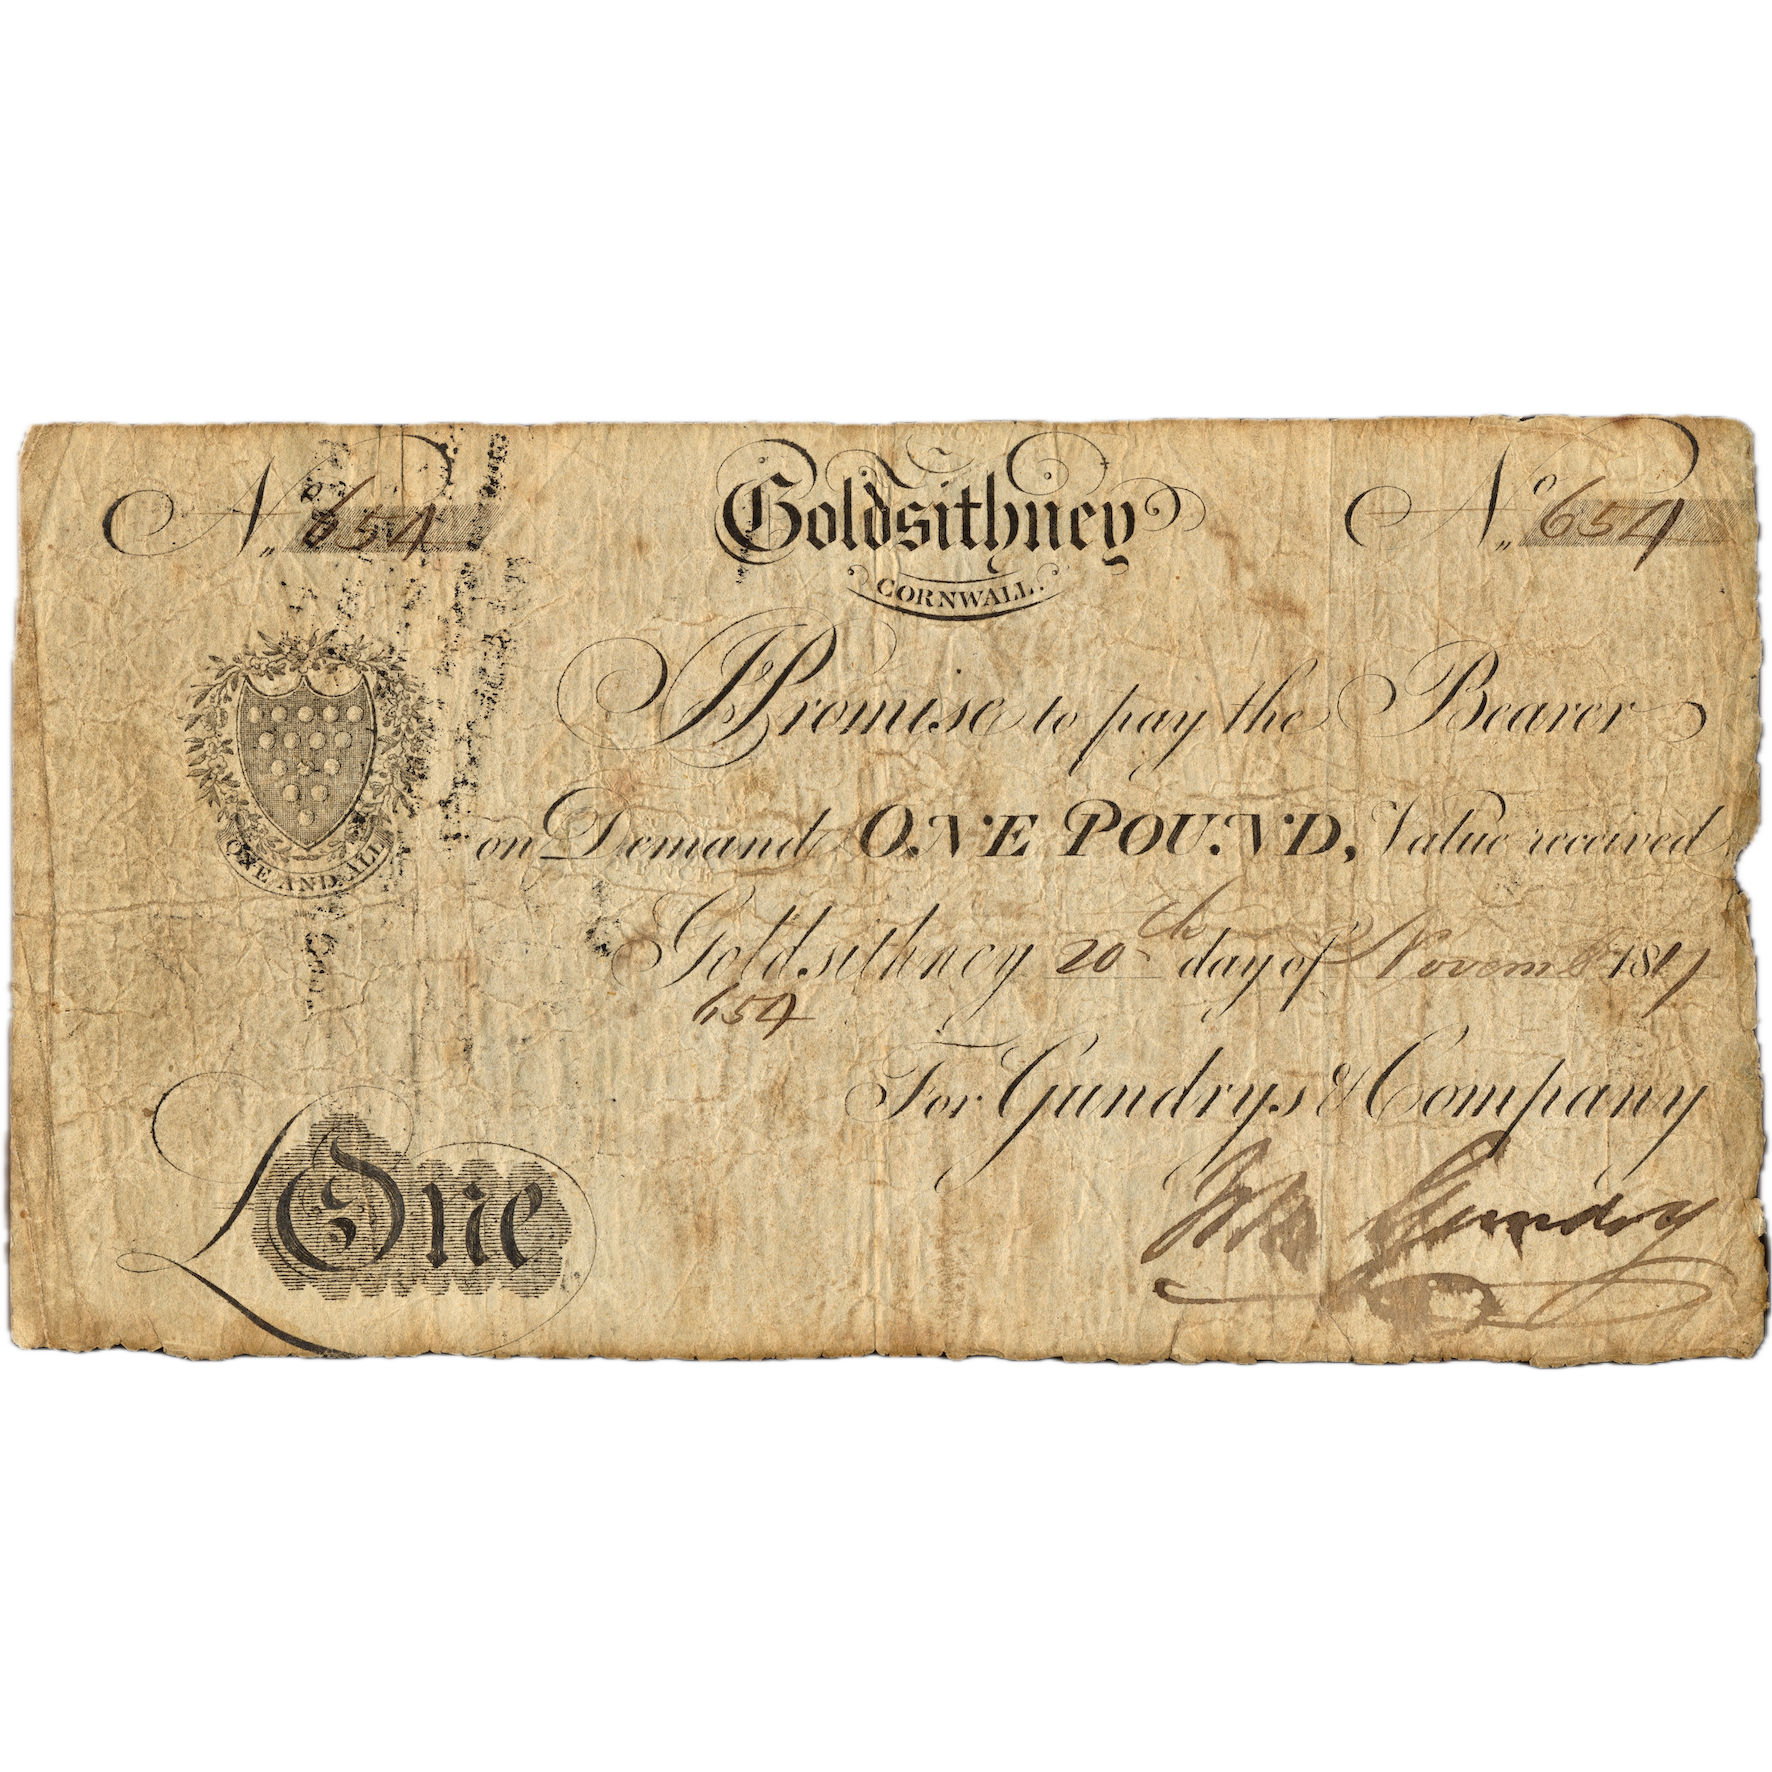 No 654
Goldsithney
No 654
CORNWALL.
I Promise to pay the Bearer
on Demand ONE POUND, Value received
ONE AND ALL
Goldsithney 20th day of Novembr 1817
654
For Gundrys & Company
£One
Wm Gundry